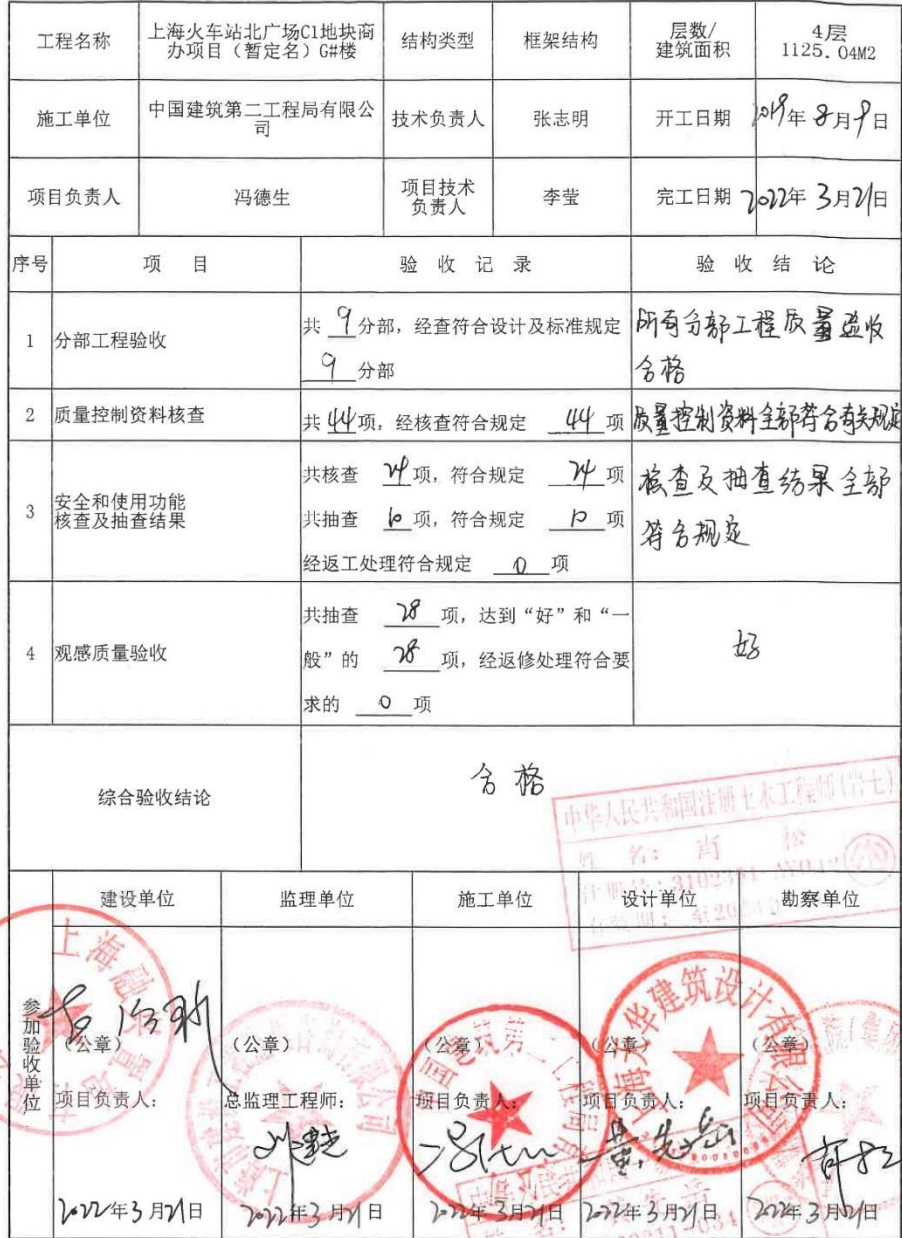 工程名称
上海火车站北广场C1地块商
办项目（暂定名）G#楼
结构类型
框架结构
层数/
建筑面积
4层
1125.04M2
施工单位
中国建筑第二工程局有限公
司
技术负责人
张志明
开工日期
2019年8月9日
项目负责人
冯德生
项目技术
负责人
李莹
完工日期
2022年3月21日
序号
项 目
验 收 记 录
验 收 结 论
1
分部工程验收
共 9 分部，经查符合设计及标准规定
9 分部
所有分部工程质量验收
合格
2
质量控制资料核查
共 44 项，经核查符合规定 44 项
质量控制资料全部符合有关规定
3
安全和使用功能
核查及抽查结果
共核查 24 项，符合规定 24 项
共抽查 10 项，符合规定 10 项
经返工处理符合规定 0 项
核查及抽查结果全部
符合规定
4
观感质量验收
共抽查 28 项，达到“好”和“一
般”的 28 项，经返修处理符合要
求的 0 项
好
综合验收结论
合格
中华人民共和国注册土木工程师(岩土)
姓 名：
松
参加验收单位
建设单位
监理单位
施工单位
设计单位
勘察单位
（公章）
（公章）
（公章）
（公章）
（公章）
项目负责人：
总监理工程师：
项目负责人：
项目负责人：
项目负责人：
2022年3月21日
2022年3月21日
2022年3月21日
2022年3月21日
2022年3月21日